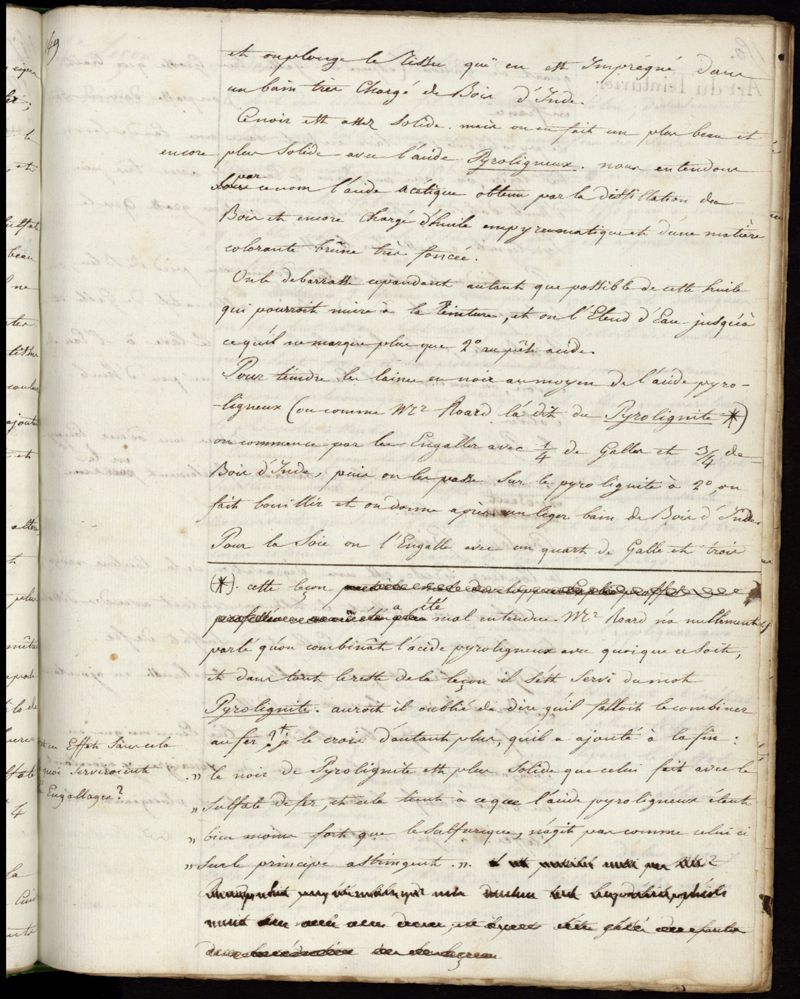 et on plonge le Tissu qui en est Imprégné dans
un bain très Chargé de Bois d'Inde.
Ce noir est assez solide. mais on en fait un plus beau et
encore plus solide avec l'acide Pyroligneux. nous entendons
par ce nom l'acide acétique obtenu par la distillation du
Bois et encore chargé d'huile empyreumatique et d'une matière
colorante brune très foncée.
On le debarrasse cependant autant que possible de cette huile
qui pourroit nuire à la Teinture, et on l'Etend d'Eau jusqu'à
ce qu'il ne marque plus que 2° au pèse acide.
Pour teindre les laines en noir au moyen de l'acide pyro-
-ligneux (ou comme Mr Roard l'a dit du Pyrolignite *)
on commence par les Engaller avec 1/4 de Galles et 3/4 de
Bois d'Inde, puis on les passe sur le pyrolignite à 2°, on
fait bouillir et on donne après un léger bain de Bois d'Inde.
Pour la Soie on l'Engalle avec un quart de Galle et trois
(*). cette leçon
a été mal entendue. Mr Roard n'a nullement
parlé qu'on combinât l'acide pyroligneux avec quoique ce soit,
et dans tout le reste de la leçon il s'est servi du mot
Pyrolignite. auroit il oublié de dire qu'il falloit le combiner
au fer ? je le crois d'autant plus, qu'il a ajouté à la fin :
Effets Sans cela
quoi serviroient
Engallages?
" le noir de Pyrolignite est plus solide que celui fait avec le
" Sulfate de fer, et cela tient à ce que l'acide pyroligneux étant
" bien moins fort que le Sulfurique, n'agit pas comme celui ci
" sur le principe astringent. "